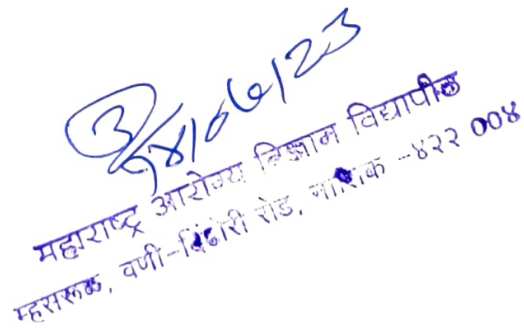 १४/०६/23
महाराष्ट्र आरोग्य विज्ञान विद्यापीठ
म्हसरूळ, वणी-दिंडोरी रोड, नाशिक -४२२ 00४